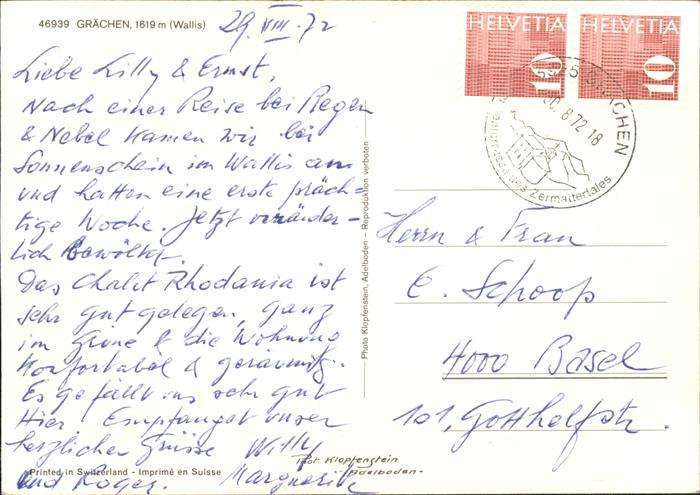 46939 GRÄCHEN, 1619 m (Wallis)
29. VIII. 72
Liebe Lilly & Ernst,
Nach einer Reise bei Regen
& Nebel kamen wir bei
Sonnenschein im Wallis an
und hatten eine erste präch=
tige Woche. Jetzt veränder-
lich bewölkt.
Das Chalet Rhodania ist
sehr gut gelegen, ganz
im Grüne & die Wohnung
Konfortabel & geräumig.
Es gefällt uns sehr gut
Hier. Empfanget unser
herzlichen Grüsse Willy
und Roger. Marguerite
Printed in Switzerland - Imprimé en Suisse
Phot. Klopfenstein
- Adelboden -
Photo Klopfenstein, Adelboden - Reproduktion verboten
HELVETIA 10
HELVETIA 10
GRÄCHEN
30. 8. 72 18
des Zermattertales
Herrn & Frau
E. Schoop
4000 Basel
101, Gotthelfstr.